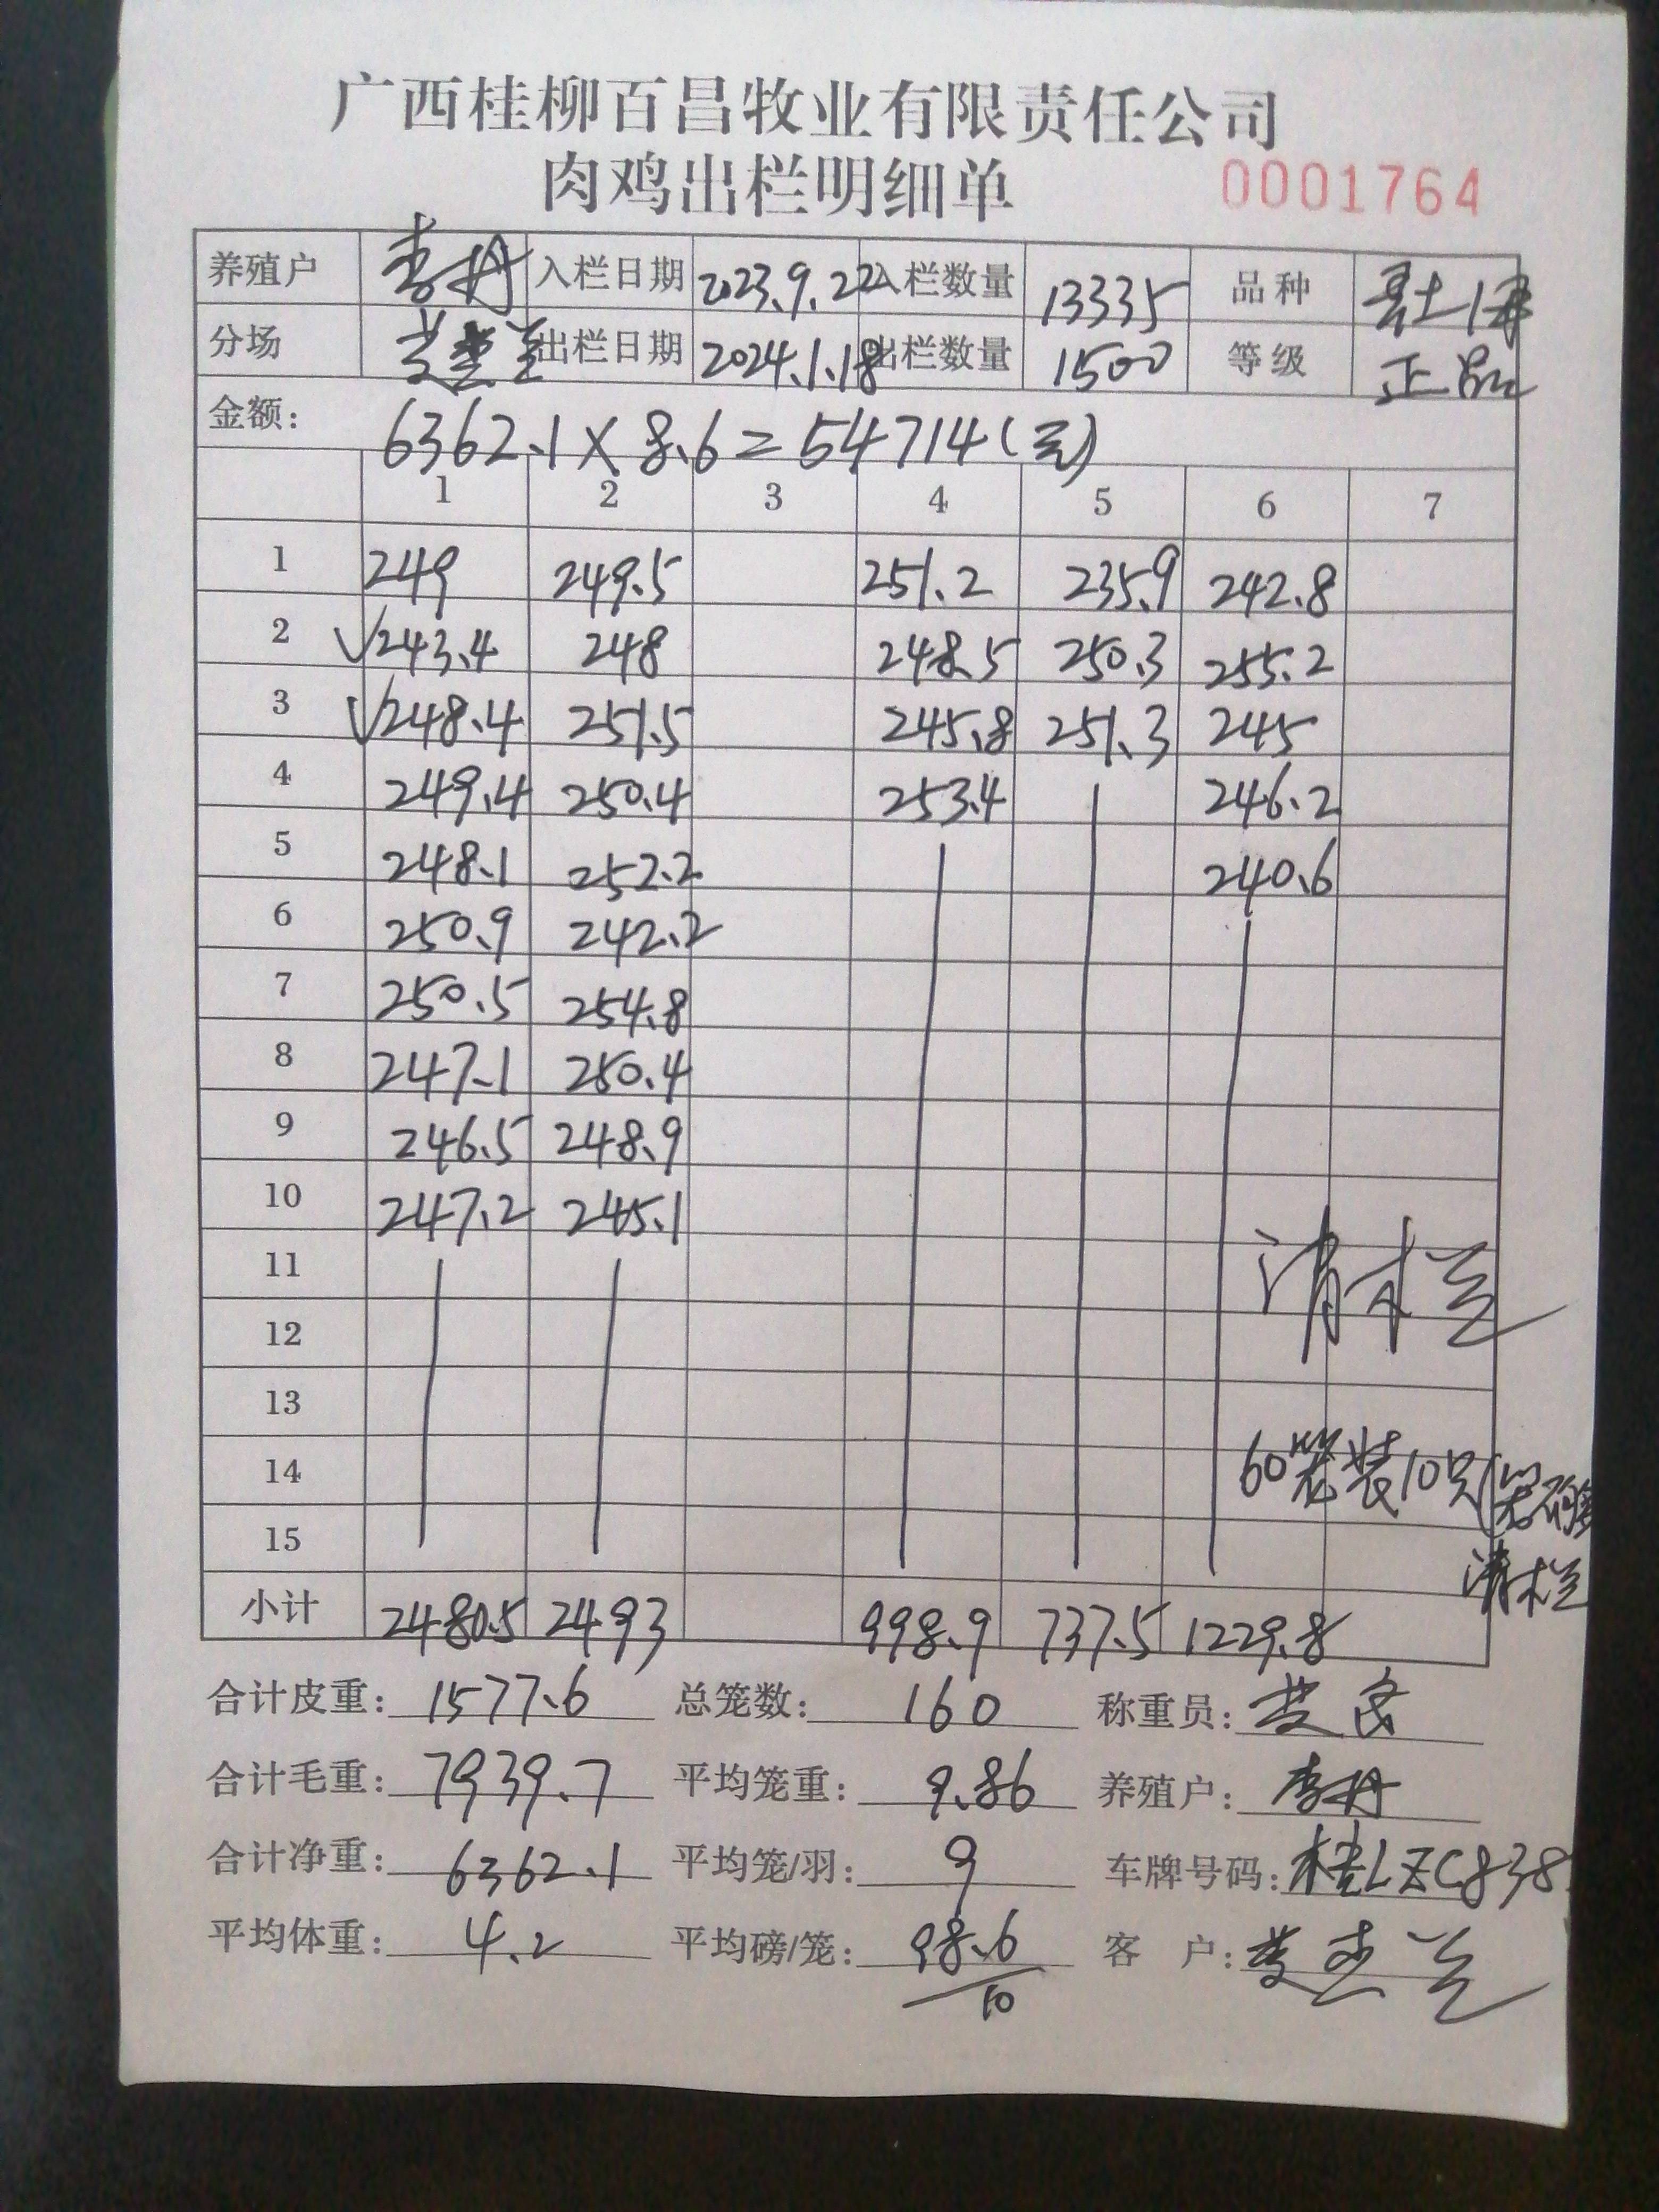 广西桂柳百昌牧业有限责任公司
肉鸡出栏明细单 0001764
养殖户 李丹 入栏日期 2023.9.22 入栏数量 13335 品种
分场 出栏日期 2024.1.18 出栏数量 1500 等级 正品
金额: 6362.1×8.6=54714(元)
1 2 3 4 5 6 7
1 249 249.5 251.2 235.9 242.8
2 √243.4 248 248.5 250.3 255.2
3 √248.4 251.5 245.8 251.3 245
4 249.4 250.4 253.4 246.2
5 248.1 252.2 240.6
6 250.9 242.2
7 250.5 254.8
8 247.1 250.4
9 246.5 248.9
10 247.2 245.1
11 清栏
12
13
14 60笼装10只
15 清栏
小计 2480.5 2493 998.9 737.5 1229.8
合计皮重: 1577.6 总笼数: 160 称重员:
合计毛重: 7939.7 平均笼重: 9.86 养殖户: 李丹
合计净重: 6362.1 平均笼/羽: 9 车牌号码: 桂LZC838
平均体重: 4.2 平均磅/笼: 98.6/10 客 户: